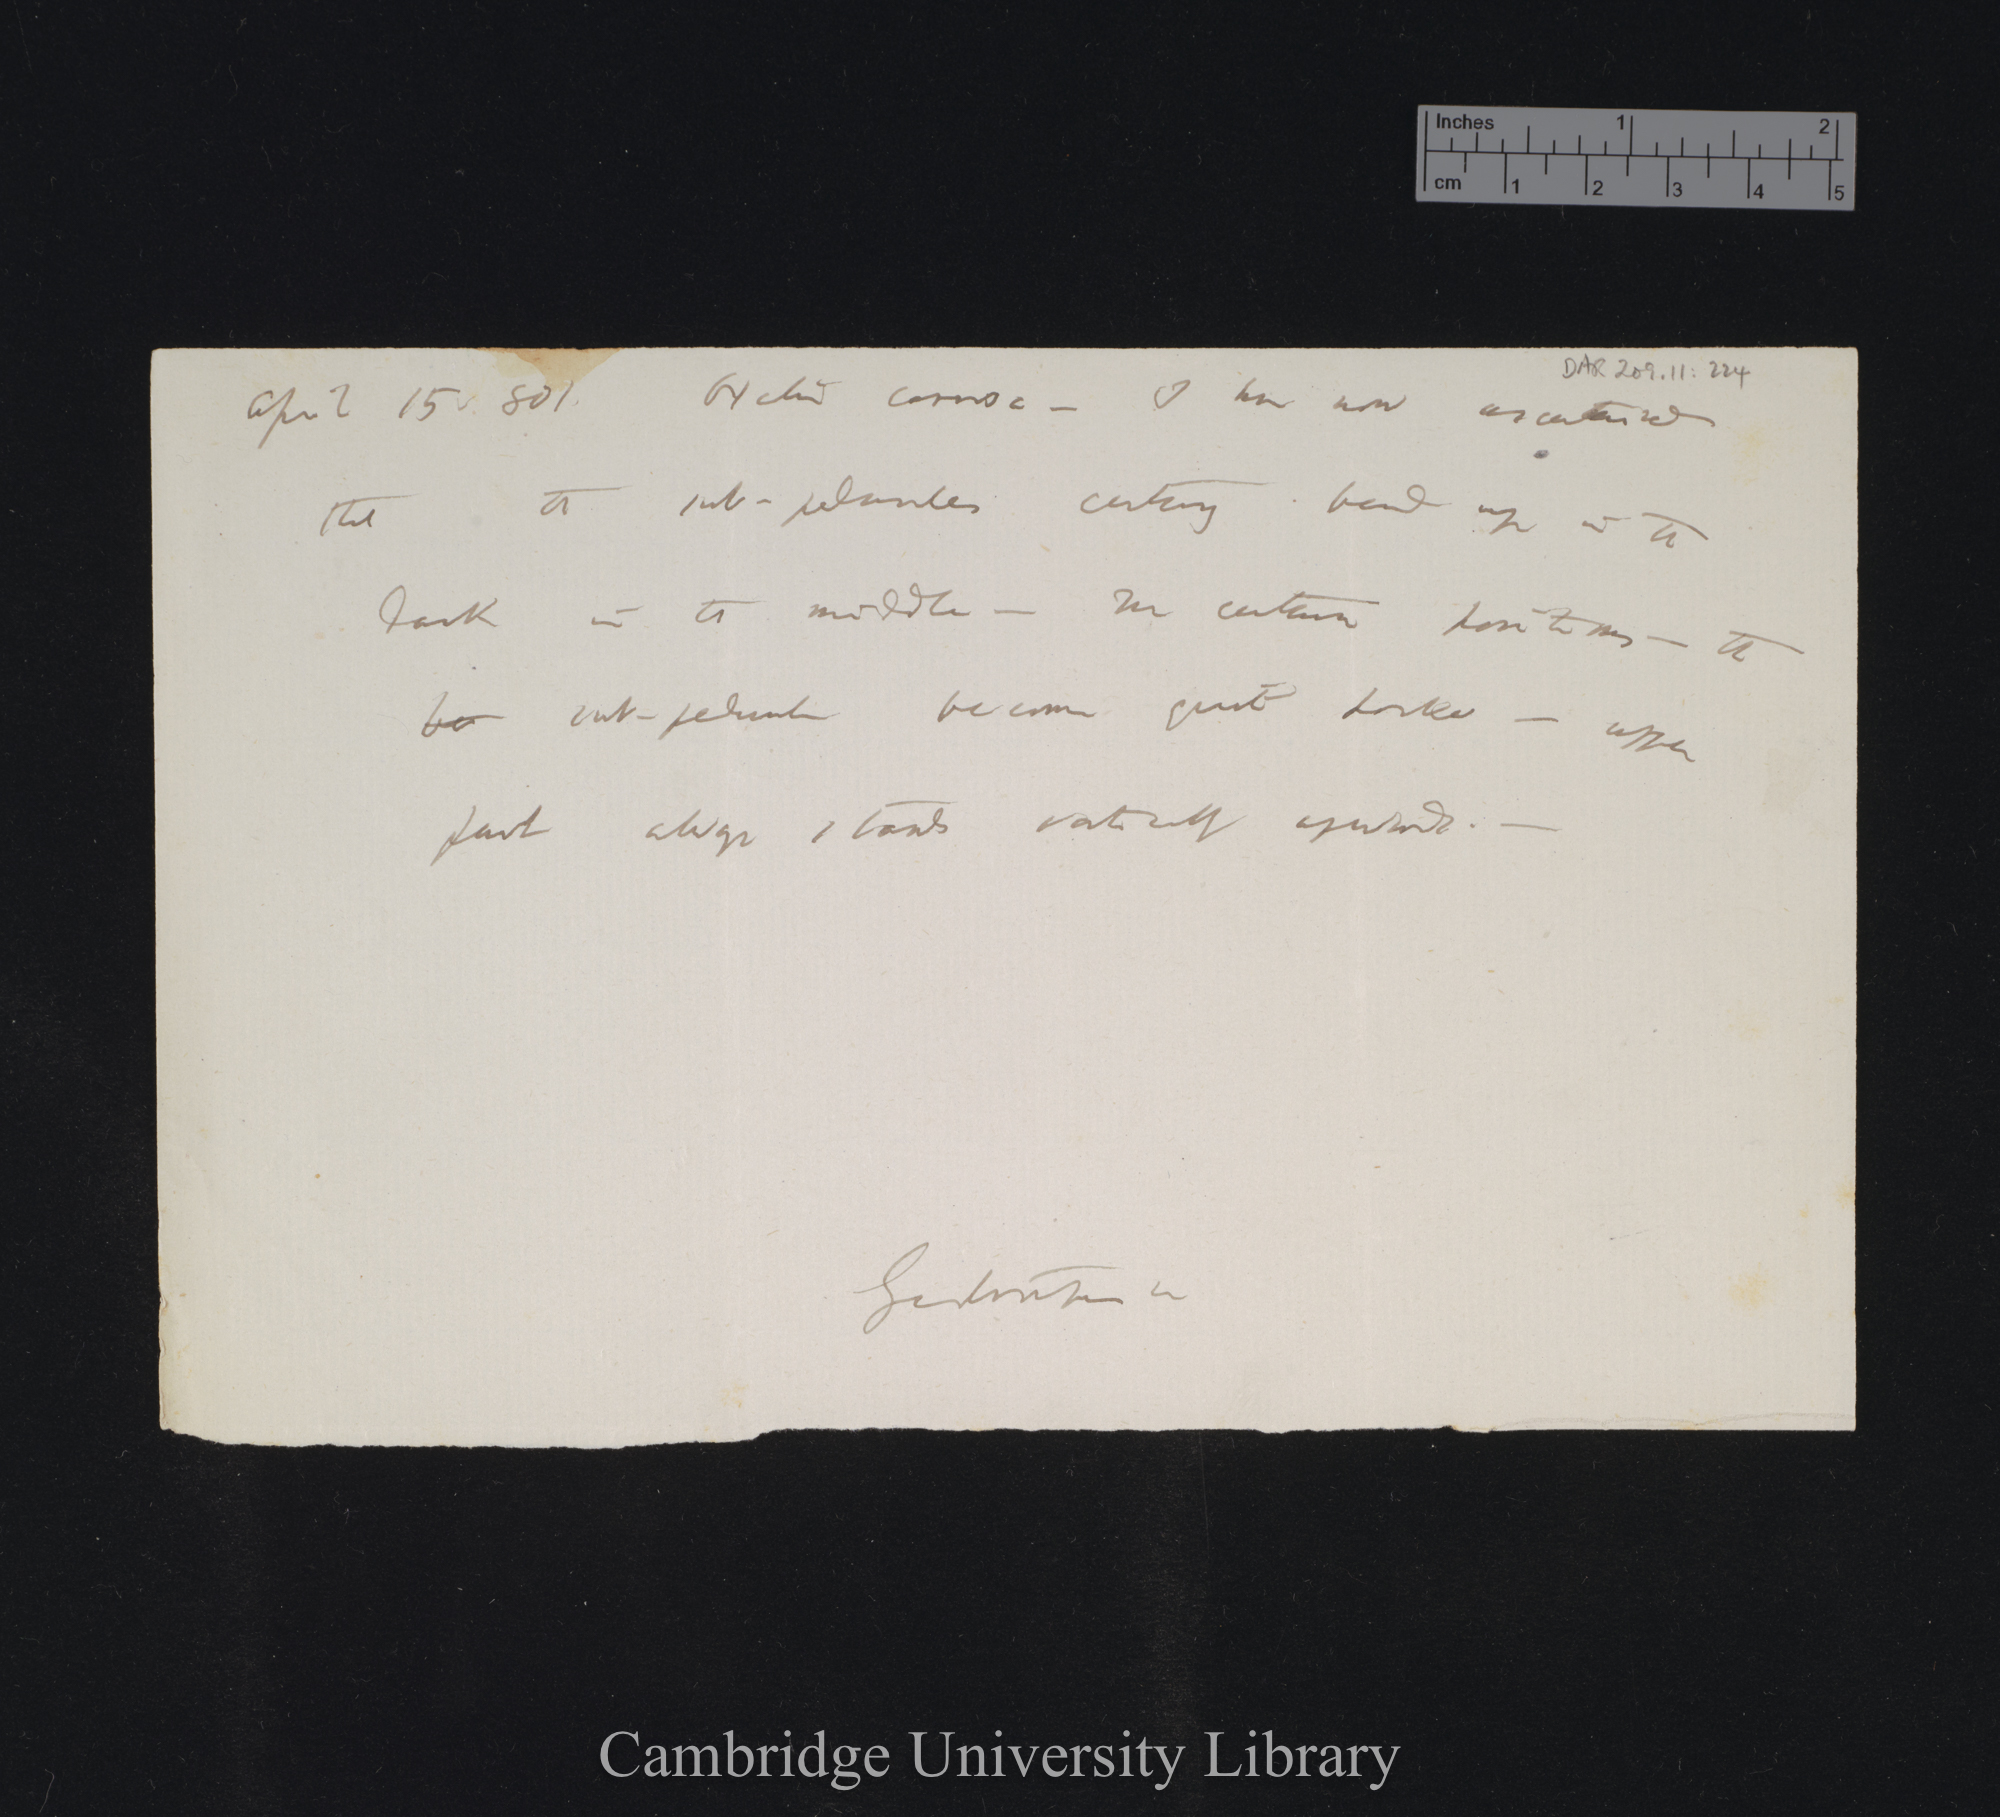 Inches 1 2
cm 1 2 3 4 5
DAR 209.11: 224
April 15. 80/. Oxalis carnosa — I have now ascertained
that the sub-peduncles certainly bend up in the
dark in the middle — In certain positions — the
be sub-peduncle become quite hooked — upper
part always stands vertically upwards. —
Cambridge University Library